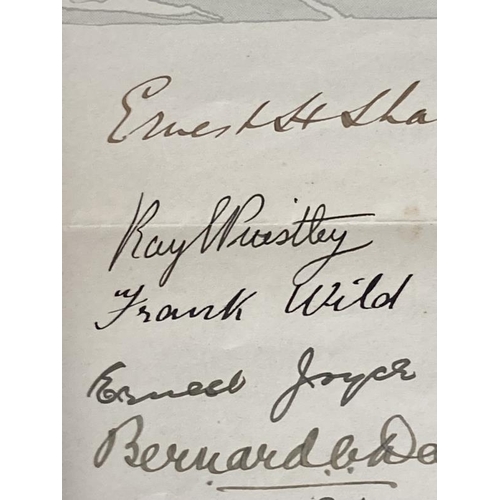 Ernest H Sha
Ray E Priestley
Frank Wild
Ernest Joyce
Bernard C. Da